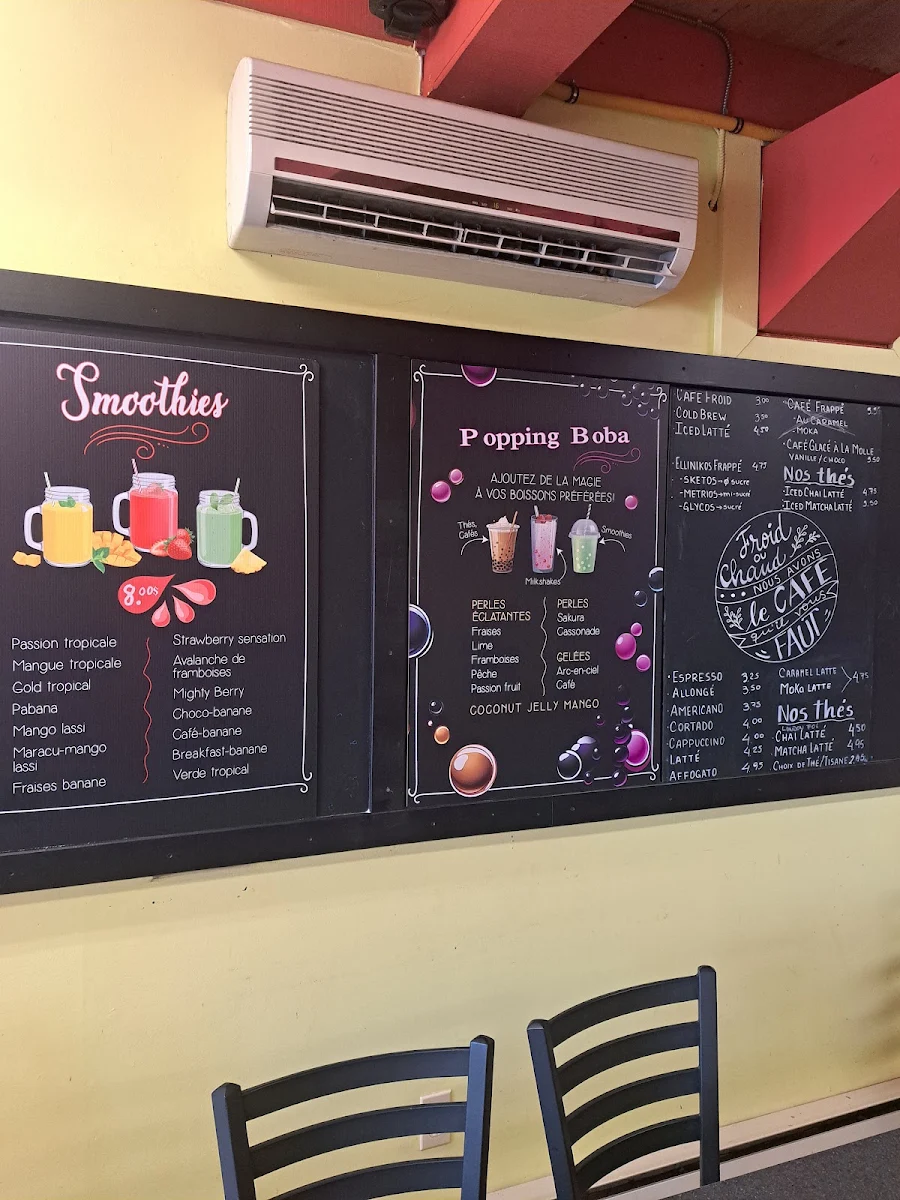 Smoothies
8.00$
Passion tropicale
Mangue tropicale
Gold tropical
Pabana
Mango lassi
Maracu-mango
lassi
Fraises banane
Strawberry sensation
Avalanche de
framboises
Mighty Berry
Choco-banane
Café-banane
Breakfast-banane
Verde tropical
Popping Boba
AJOUTEZ DE LA MAGIE
À VOS BOISSONS PRÉFÉRÉES!
Thés,
Cafés
Smoothies
Milkshakes
PERLES
ÉCLATANTES
Fraises
Lime
Framboises
Pêche
Passion fruit
PERLES
Sakura
Cassonade
GELÉES
Arc-en-ciel
Café
COCONUT JELLY MANGO
CAFÉ FROID 3.00
COLD BREW 3.50
ICED LATTÉ 4.50
ELLINIKOS FRAPPÉ 4.75
- SKETOS → Ø sucre
- METRIOS → mi-sucré
- GLYCOS → sucré
CAFÉ FRAPPÉ
AU CARAMEL
MOKA
CAFÉ GLACÉ À LA MOLLE
VANILLE/CHOCO 3.50
Nos thés
ICED CHAI LATTÉ 4.75
ICED MATCHA LATTÉ 5.50
Froid
ou
Chaud
NOUS AVONS
le CAFÉ
qu'il vous
FAUT
ESPRESSO 3.25
ALLONGÉ 3.50
AMERICANO 3.75
CORTADO 4.00
CAPPUCCINO 4.00
LATTÉ 4.25
AFFOGATO 4.95
CARAMEL LATTÉ
MOKA LATTÉ 4.75
Nos thés
CHAI LATTÉ 4.50
MATCHA LATTÉ 4.95
CHOIX DE THÉ/TISANE